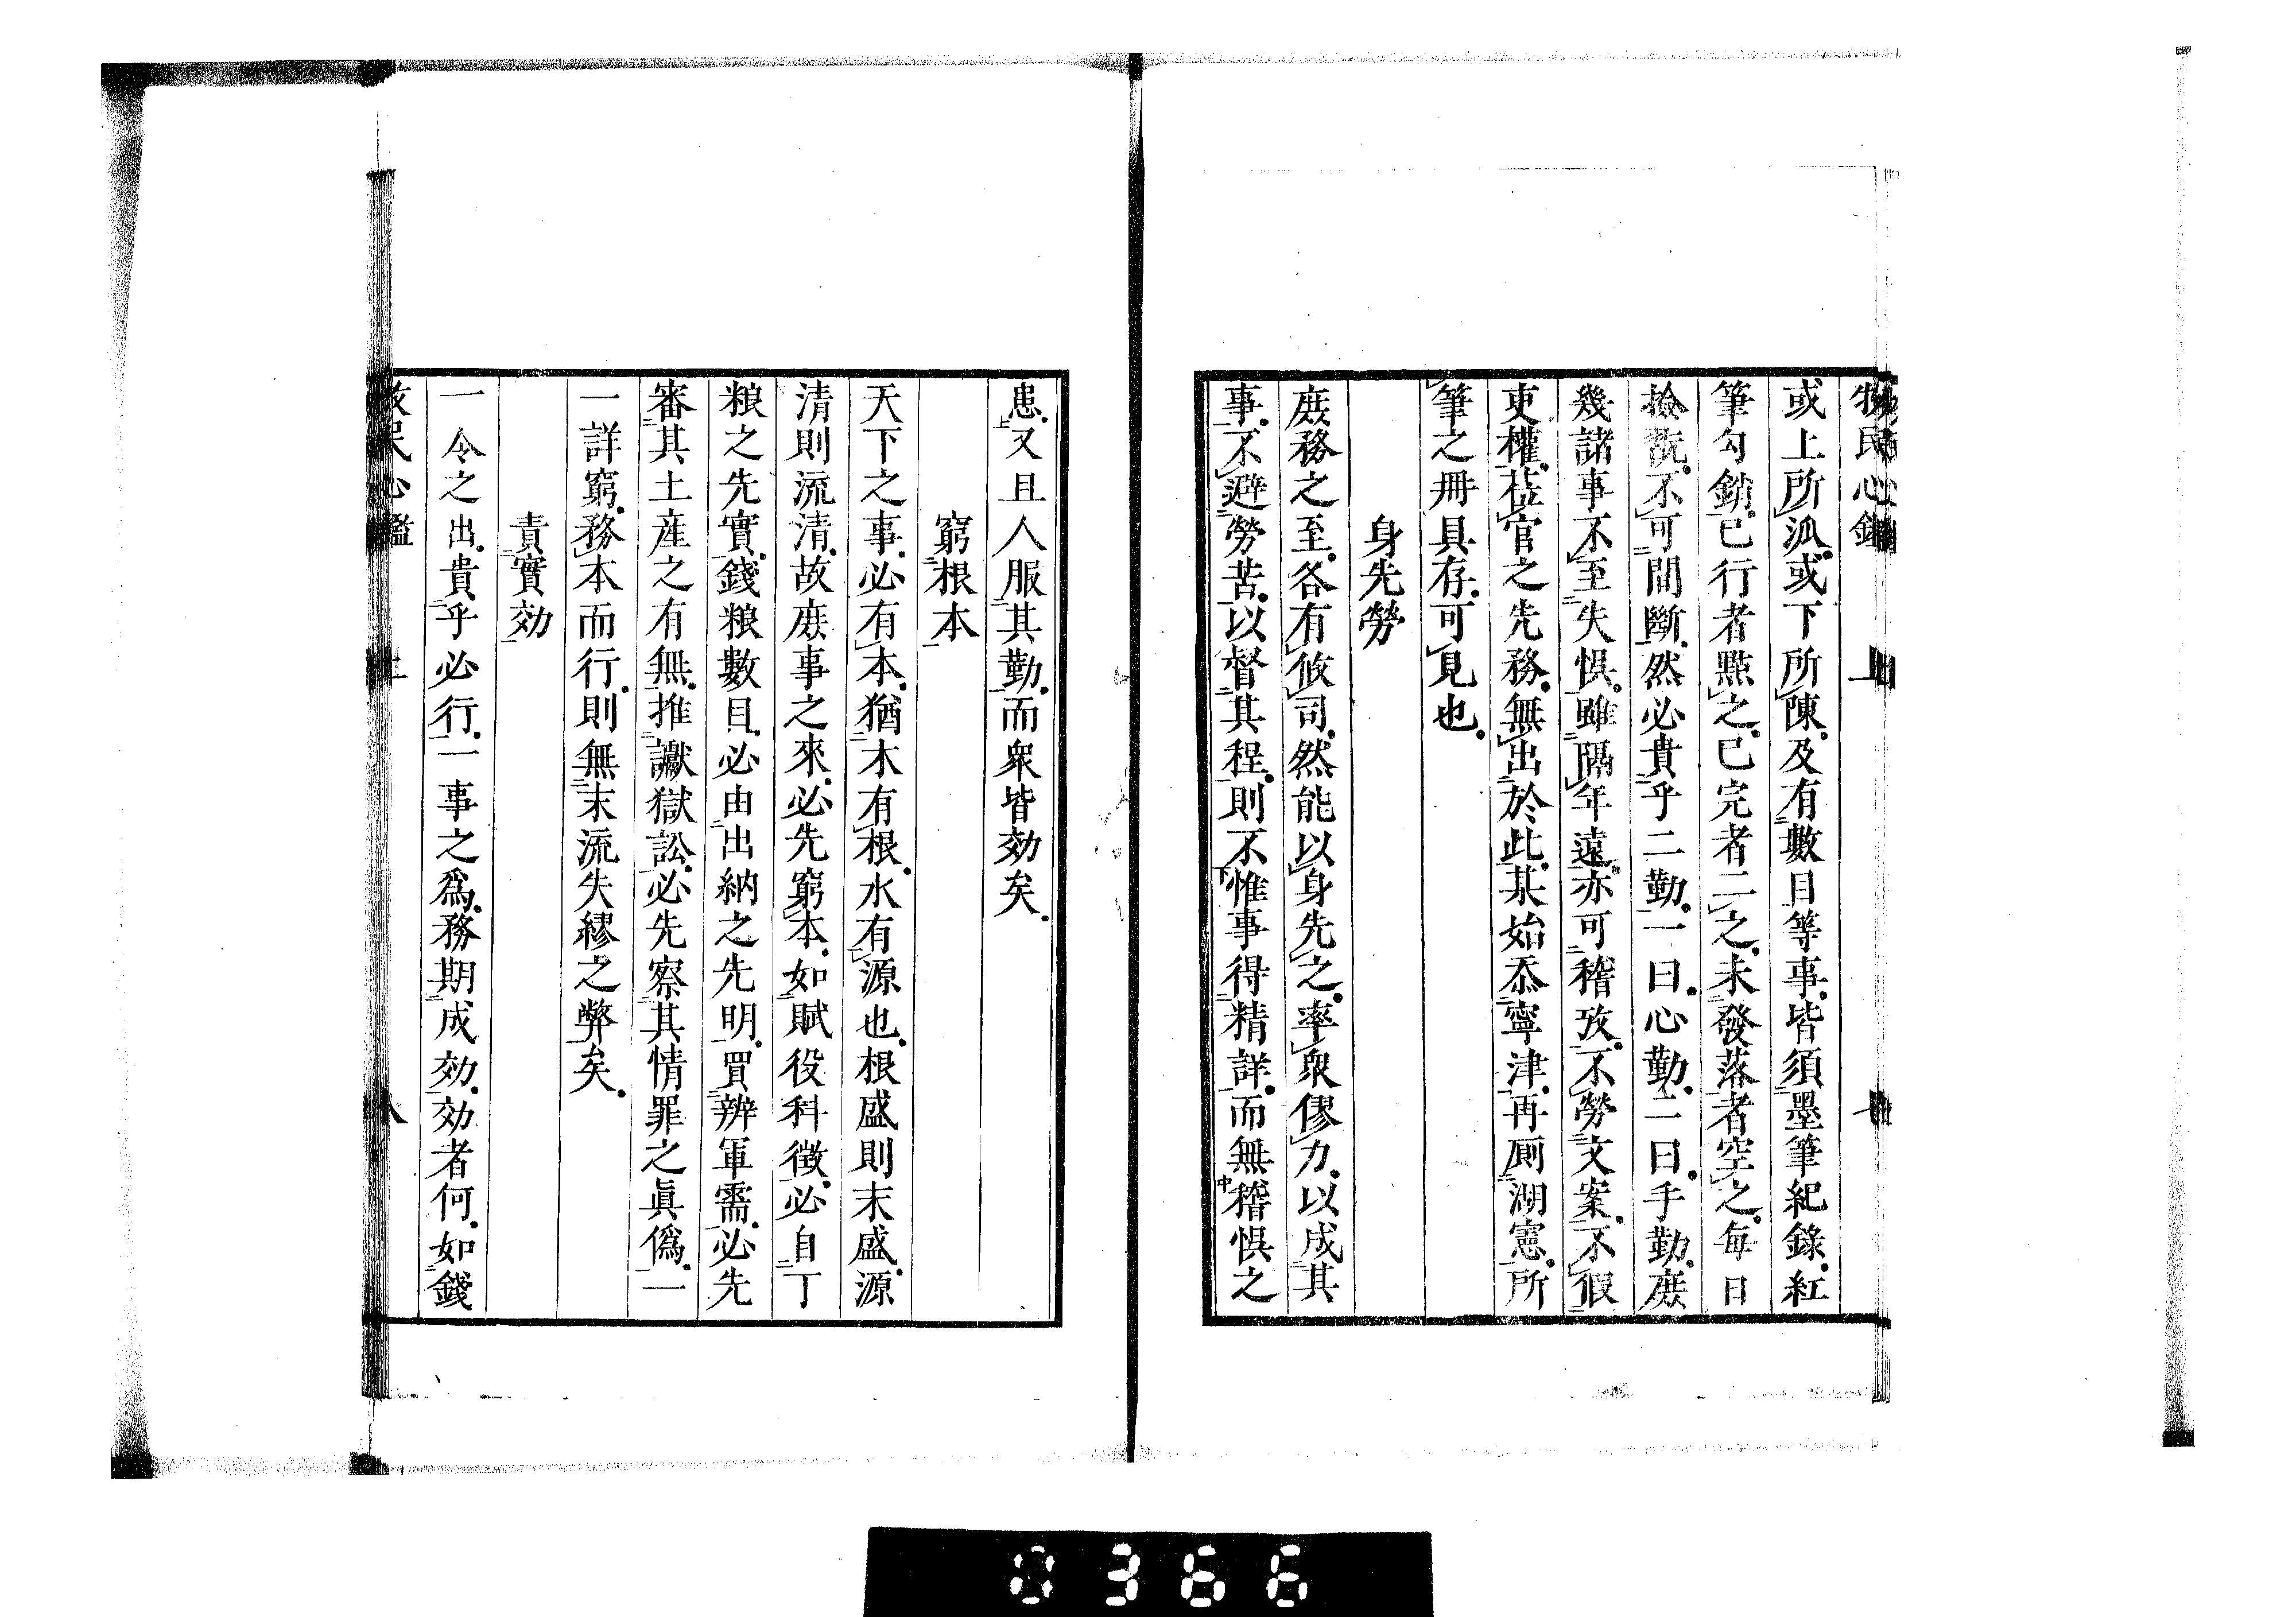 牧民心鑑 上 七
或上所泒或下所陳及有數目等事皆須墨筆紀錄紅
筆勾銷已行者點之已完者二之未發落者空之每日
撿 不可間斷然必貴乎二勤一曰心勤二曰手勤庻
幾諸事不至失悞雖隔年遠亦可稽攷不勞文案不假
吏權莅官之先務無出於此某始忝寧津再厠湖憲所
筆之冊具存可見也
身先勞
庻務之至各有攸司然能以身先之率衆僇力以成其
事不避勞苦以督其程則不惟事得精詳而無稽悞之
患又且人服其勤而衆皆効矣
窮根本
天下之事必有本猶木有根水有源也根盛則末盛源
清則流清故庻事之來必先窮本如賦役科徵必自丁
粮之先實錢粮數目必由出納之先明買辨軍需必先
審其土産之有無推讞獄訟必先察其情罪之眞僞一
一詳窮務本而行則無末流失繆之弊矣
責實効
一令之出貴乎必行一事之爲務期成効効者何如錢
牧民心鑑 上 八
0366